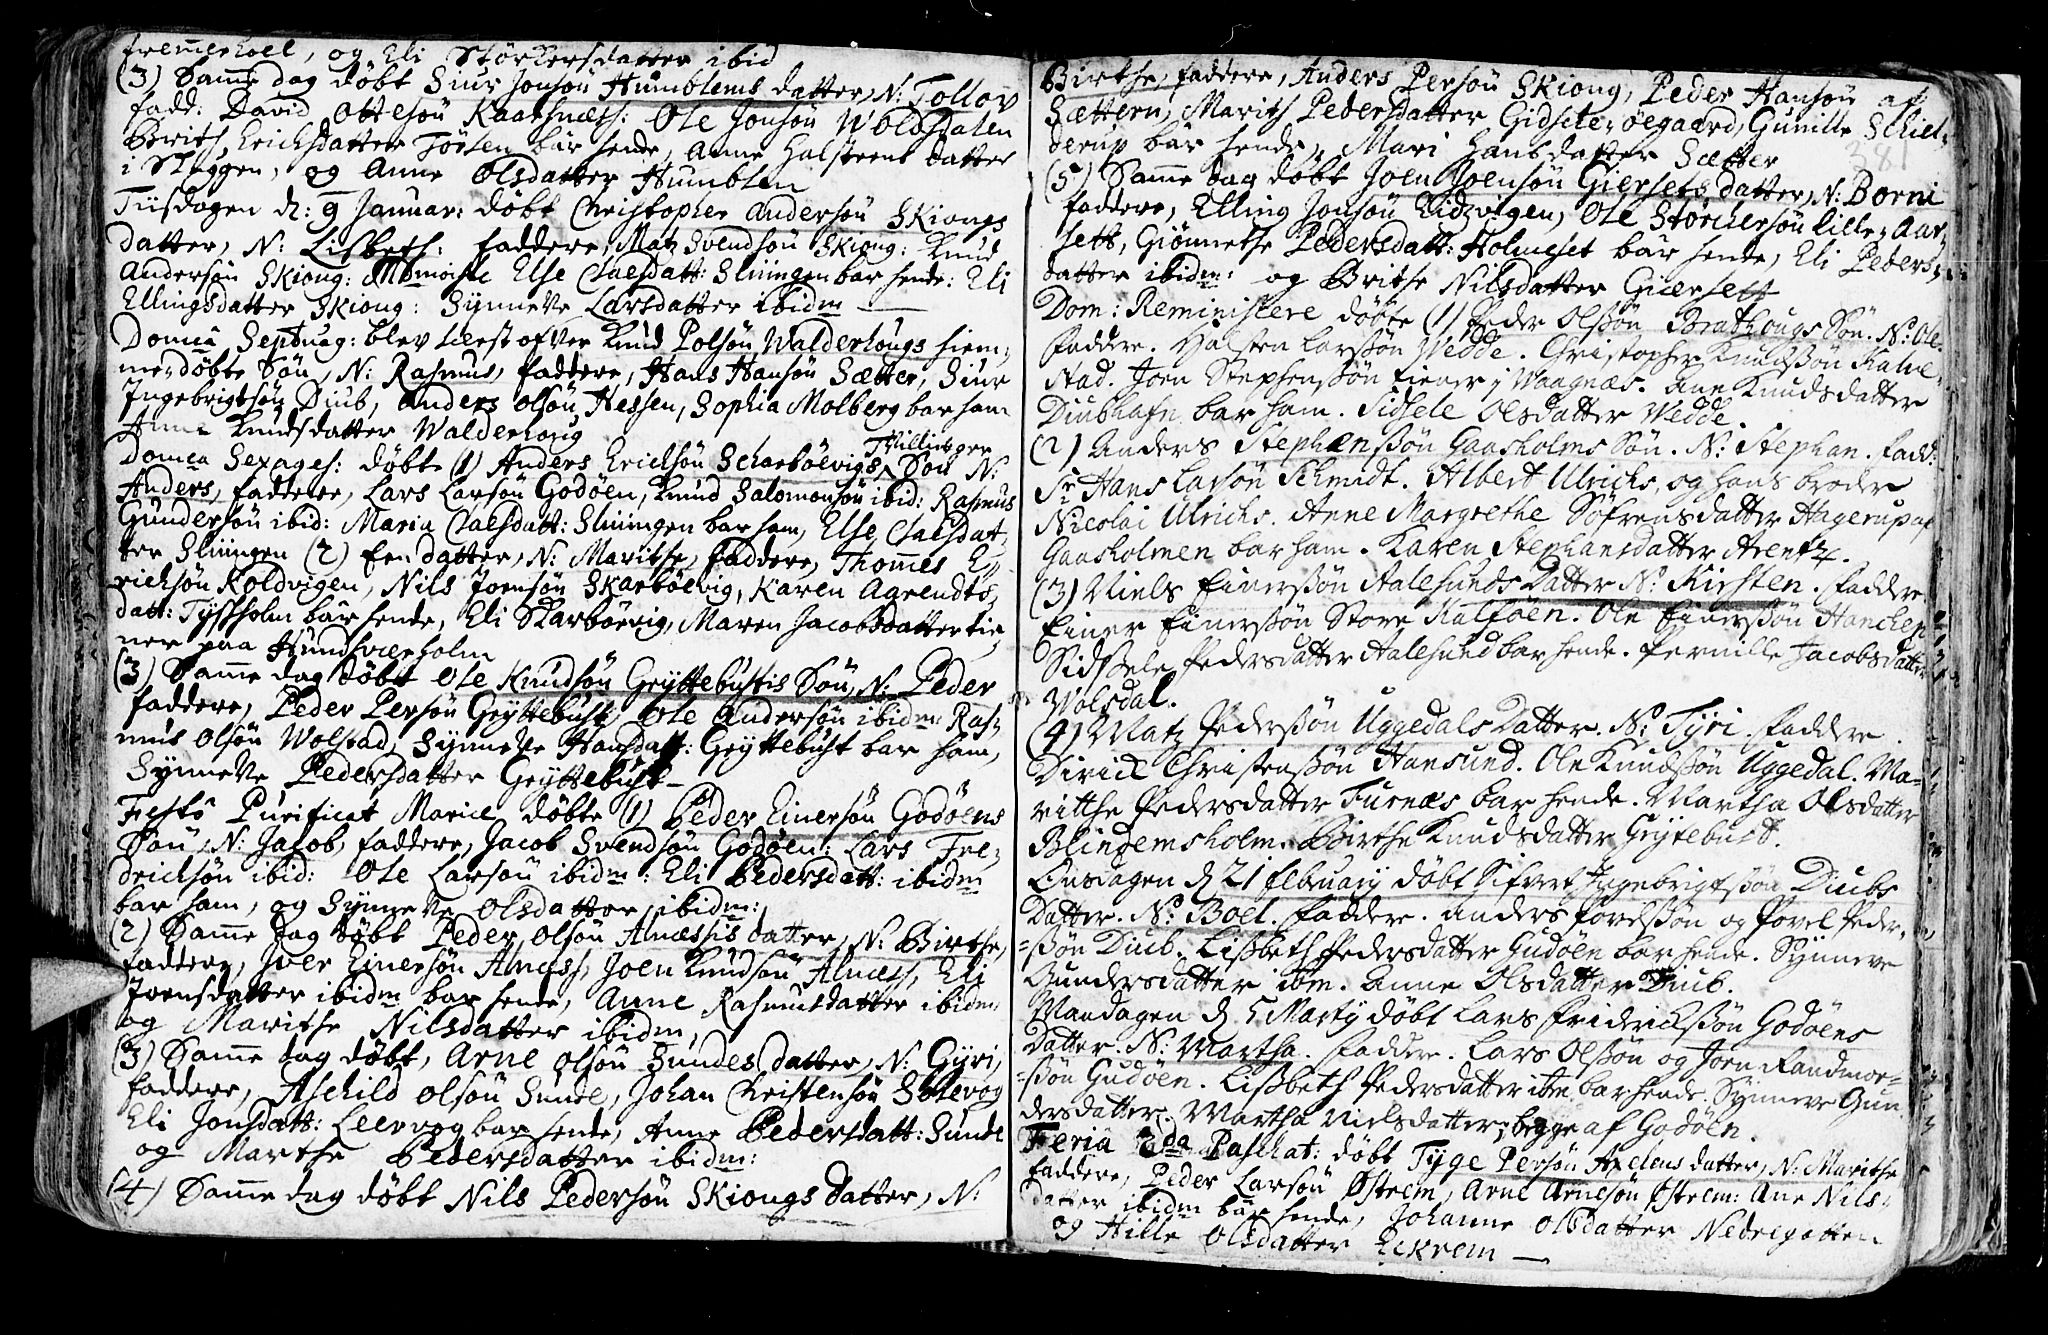 fremerhoel, og Eli Störkersdatter ibid
(3) Same dag döbt Siur Jonsön Humblems datter, N: Tollov
fadd: David Ottesön Kaarsnæs: Ole Jonsön Woldsdalen
Brith Erichsdatter bar hende, Anne Halsteens datter
i Skuggen, og Anne Olsdatter Humblen
Tiisdagen d: 9 Januar: döbt Christopher Andersön Skiongs
datter, N: Lisbeth: faddere, Matz Svendsön Skiong: Knud
Andersön Skiong: Else Claesdatt: Sliningen bar hende: Eli
Ellingsdatter Skiong: Synneve Larsdatter ibidm
Domca Septuag: blev læst ofver Knud Polsön Walderhougs hiem,
medöbte Sön, N: Rasmus, faddere, Hans Hansön Sætter, Siur
Ingebrigtsön Diub, Anders Olsön Hessen, Sophia Molberg bar ham
Anne Knudsdatter Walderhoug
Domca Sexages: döbte (1) Anders Ericksön Scharböevigs Tvillinger Sön N:
Anders, faddere, Lars Larsön Godöen, Knud Salomonsön ibid: Rasmus
Gundersön ibid: Maria Claesdatt: Sliningen bar ham, Else Claesdat,
ter Sliningen (2) Een datter, N: Marithe, faddere, Thommes E,
ricksön Koldvigen, Nils Joensön Skarböevig, Karen Agrendts,
datt: Tyssholm bar hende, Eli Skarböevig, Maren Jacobsdatter tie,
ner paa Hundsværholm
(3) Same dag döbt Ole Knudsön Gryttebustis Sön, N: Peder
faddere, Peder Persön Gryttebust, Ole Andersön ibidm Ras,
mus Olsön Wolstad, Synneve Hansdatt: Gryttebust bar ham,
Synneve Pedersdatter Gryttebust
Festo Purificat Mariæ döbte (1) Peder Einersön Godöens
Sön, N: Jacob, faddere, Jacob Svendsön Godöen: Lars Fre,
dricksön ibid: Ole Larsön ibidm: Eli Pedersdatt: ibidm
bar ham, og Synneve Olsdatter ibidm:
(2) Same dag döbt Peder Olsön Alnæssis datter, N: Birthe,
faddere, Iver Einersön Alnæss, Joen Knudsön Alnæss, Eli
Joensdatter ibidm bar hende, Anne Rasmusdatter ibidm
og Marithe Nilsdatter ibidm,
(3) Same dag döbt, Arne Olsön Sundes datter, N: Gyri,
faddere, Aschild Olsön Sunde, Johan Christensön Solevog
Eli Jonsdatt: Leervog bar hende, Anne Pedersdatt: Sunde
og Marthe Pedersdatter ibidm:
(4) Same dag döbt Nils Pedersön Skiongs datter, N:
Birthe, faddere, Anders Persön Skiong, Peder Hansön af
Sættern, Marith Pedersdatter Gidske-öegaard, Gunille Schiel,
derup bar hende, Mari Hansdatter Sætter
381
(5) Same dag döbt Joen Joensön Giersets datter, N: Borni
faddere, Elling Jonsön Eidzvigen, Ole Störchersön Lille-Aar,
sett, Giönnethe Pedersdatt: Holmeset bar hende, Eli Peders,
datter ibidm: og Brithe Nilsdatter Giersett
Dom: Reminiscere döbte (1) Peder Olssön Brathougs Sön. N: Ole.
Faddere. Halsten Larssön Wedde. Christopher Knudssön Kalve-
stad. Joen Stephenssön tiener j Waagnæs. Ane Knudsdatter
Diubhafn bar ham. Sidsele Olsdatter Wedde.
(2) Anders Stephenssön Gaasholms Sön. N: Stephan. Fadd:
Sr Hans Larsön Schmidt. Albert Ulrichs, og hans broder
Nicolai Ulrichs. Anne Margrethe Söfrensdatter Hagerup af
Gaasholmen bar ham. Karen Stephansdatter Arentz.
(3) Niels Einerssön Aalesunds Datter N: Kirsten. Faddere
Einer Einerssön Store Kalföen. Ole Einerssön Hanchen
Sidsele Pedersdatter Aalesund bar hende. Pernille Jacobsdatter
Wolsdal.
(4) Matz Pederssön Uggedals Datter. N: Tyri. Faddere
Dirick Christenssön Hansund. Ole Knudssön Uggedal. Ma-
ritthe Pedersdatter Furnæs bar hende. Martha Olsdatter
Blindemsholm. Birthe Knudsdatter Grytebust.
Onsdagen d 21 February döbt Sifvert Ingebrigtssön Diubs
Datter. N: Boel. Faddere. Anders Povelssön og Povel Peder-
=ssön Diub. Lissbeth Pedersdatter Gudöen bar hende. Synneve
Gundersdatter ibm. Anne Olsdatter Diub.
Mandagen d 5 Marty döbt Lars Friderickssön Godöens
Datter. N: Martha. Faddere. Lars Olssön og Joen Randmoe-
=ssön Gudöen. Lissbeth Pedersdatter ibm bar hende. Synneve Gun
dersdatter. Martha Nielsdatter, begge af Godöen.
Feria 2da Paschat: döbt Tyge Persön Axelens datter, N: Marithe
faddere, Peder Larsön Østrem, Arne Arnesön Østrem: Ane Nils,
datter ibidm bar hende, Johanne Olsdatter Nedregotten
og Hille Olsdatter Eckrem